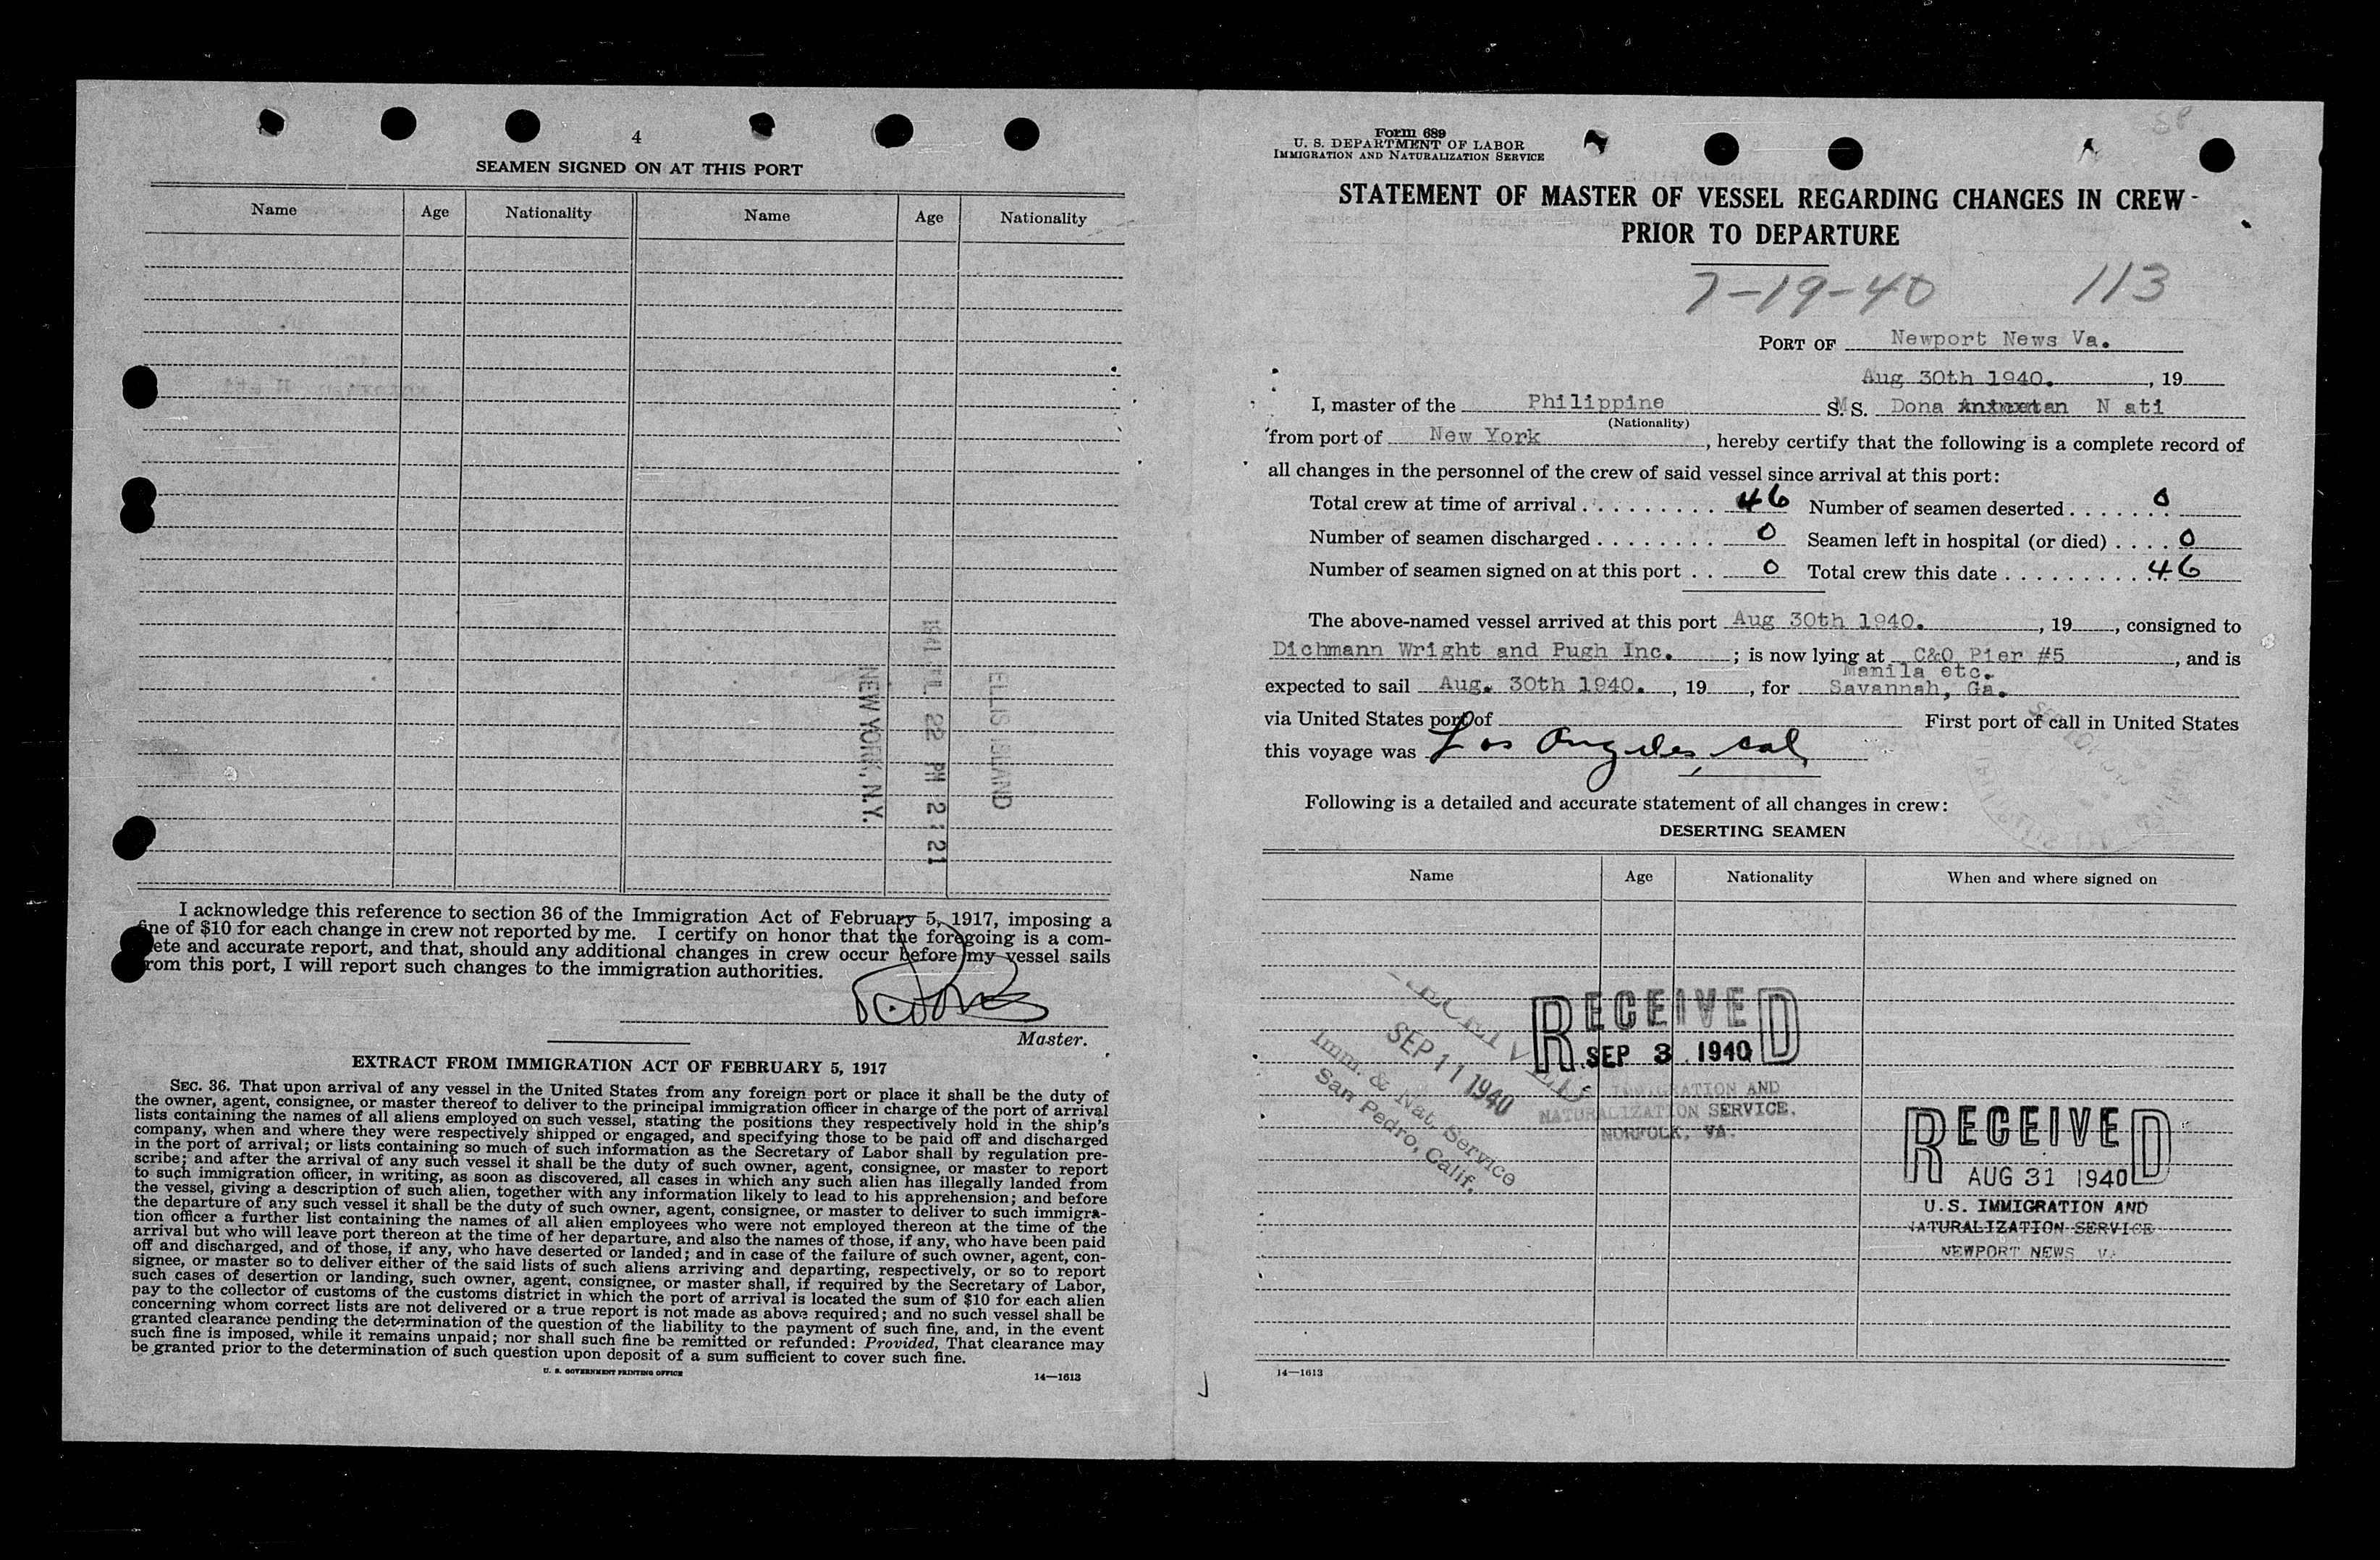 4
SEAMEN SIGNED ON AT THIS PORT
Name Age Nationality Name Age Nationality
ELLIS ISLAND
22 PM 2:21
NEW YORK, N.Y.
I acknowledge this reference to section 36 of the Immigration Act of February 5, 1917, imposing a
fine of $10 for each change in crew not reported by me. I certify on honor that the foregoing is a com-
ete and accurate report, and that, should any additional changes in crew occur before my vessel sails
rom this port, I will report such changes to the immigration authorities.
Master.
EXTRACT FROM IMMIGRATION ACT OF FEBRUARY 5, 1917
SEC. 36. That upon arrival of any vessel in the United States from any foreign port or place it shall be the duty of
the owner, agent, consignee, or master thereof to deliver to the principal immigration officer in charge of the port of arrival
lists containing the names of all aliens employed on such vessel, stating the positions they respectively hold in the ship's
company, when and where they were respectively shipped or engaged, and specifying those to be paid off and discharged
in the port of arrival; or lists containing so much of such information as the Secretary of Labor shall by regulation pre-
scribe; and after the arrival of any such vessel it shall be the duty of such owner, agent, consignee, or master to report
to such immigration officer, in writing, as soon as discovered, all cases in which any such alien has illegally landed from
the vessel, giving a description of such alien, together with any information likely to lead to his apprehension; and before
the departure of any such vessel it shall be the duty of such owner, agent, consignee, or master to deliver to such immigra-
tion officer a further list containing the names of all alien employees who were not employed thereon at the time of the
arrival but who will leave port thereon at the time of her departure, and also the names of those, if any, who have been paid
off and discharged, and of those, if any, who have deserted or landed; and in case of the failure of such owner, agent, con-
signee, or master so to deliver either of the said lists of such aliens arriving and departing, respectively, or so to report
such cases of desertion or landing, such owner, agent, consignee, or master shall, if required by the Secretary of Labor,
pay to the collector of customs of the customs district in which the port of arrival is located the sum of $10 for each alien
concerning whom correct lists are not delivered or a true report is not made as above required; and no such vessel shall be
granted clearance pending the determination of the question of the liability to the payment of such fine, and, in the event
such fine is imposed, while it remains unpaid; nor shall such fine be remitted or refunded: Provided, That clearance may
be granted prior to the determination of such question upon deposit of a sum sufficient to cover such fine.
U. S. GOVERNMENT PRINTING OFFICE 14—1613
58
Form 689
U. S. DEPARTMENT OF LABOR
IMMIGRATION AND NATURALIZATION SERVICE
STATEMENT OF MASTER OF VESSEL REGARDING CHANGES IN CREW
PRIOR TO DEPARTURE
7-19-40 113
PORT OF Newport News Va.
Aug 30th 1940. , 19
I, master of the Philippine M S. S. Dona N ati
(Nationality)
from port of New York , hereby certify that the following is a complete record of
all changes in the personnel of the crew of said vessel since arrival at this port:
Total crew at time of arrival . . . . . . . . . 46 Number of seamen deserted . . . . . . . 0
Number of seamen discharged . . . . . . . . 0 Seamen left in hospital (or died) . . . . 0
Number of seamen signed on at this port . . 0 Total crew this date . . . . . . . . . . . 46
The above-named vessel arrived at this port Aug 30th 1940. , 19 , consigned to
Dichmann Wright and Pugh Inc. ; is now lying at C&O Pier #5 , and is
Manila etc.
expected to sail Aug. 30th 1940. , 19 , for Savannah, Ga.
via United States port of First port of call in United States
this voyage was Los Angeles, Cal,
Following is a detailed and accurate statement of all changes in crew:
DESERTING SEAMEN
Name Age Nationality When and where signed on
RECEIVED
SEP 3 1940
IMMIGRATION AND
NATURALIZATION SERVICE.
NORFOLK, VA.
RECEIVED
SEP 11 1940
Imm. & Nat. Service
San Pedro, Calif.
RECEIVED
AUG 31 1940
U.S. IMMIGRATION AND
NATURALIZATION SERVICE
NEWPORT NEWS VA
14—1613